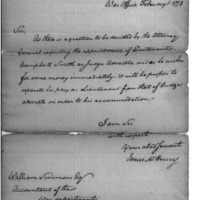 War Office February 1. 1798
Sir,
As there is a question to be decided by the Attorney
General respecting the appointment of Lieutenant
Campbell Smith as Judge Advocate and as he wishes
for some money immediately; it will be proper to
separate his pay as Lieutenant from that of Judge
advocate in order to his accommodation.
I am Sir
with respect
Your obed servant
James McHenry
William Simmons Esq
Accountant of the
War department